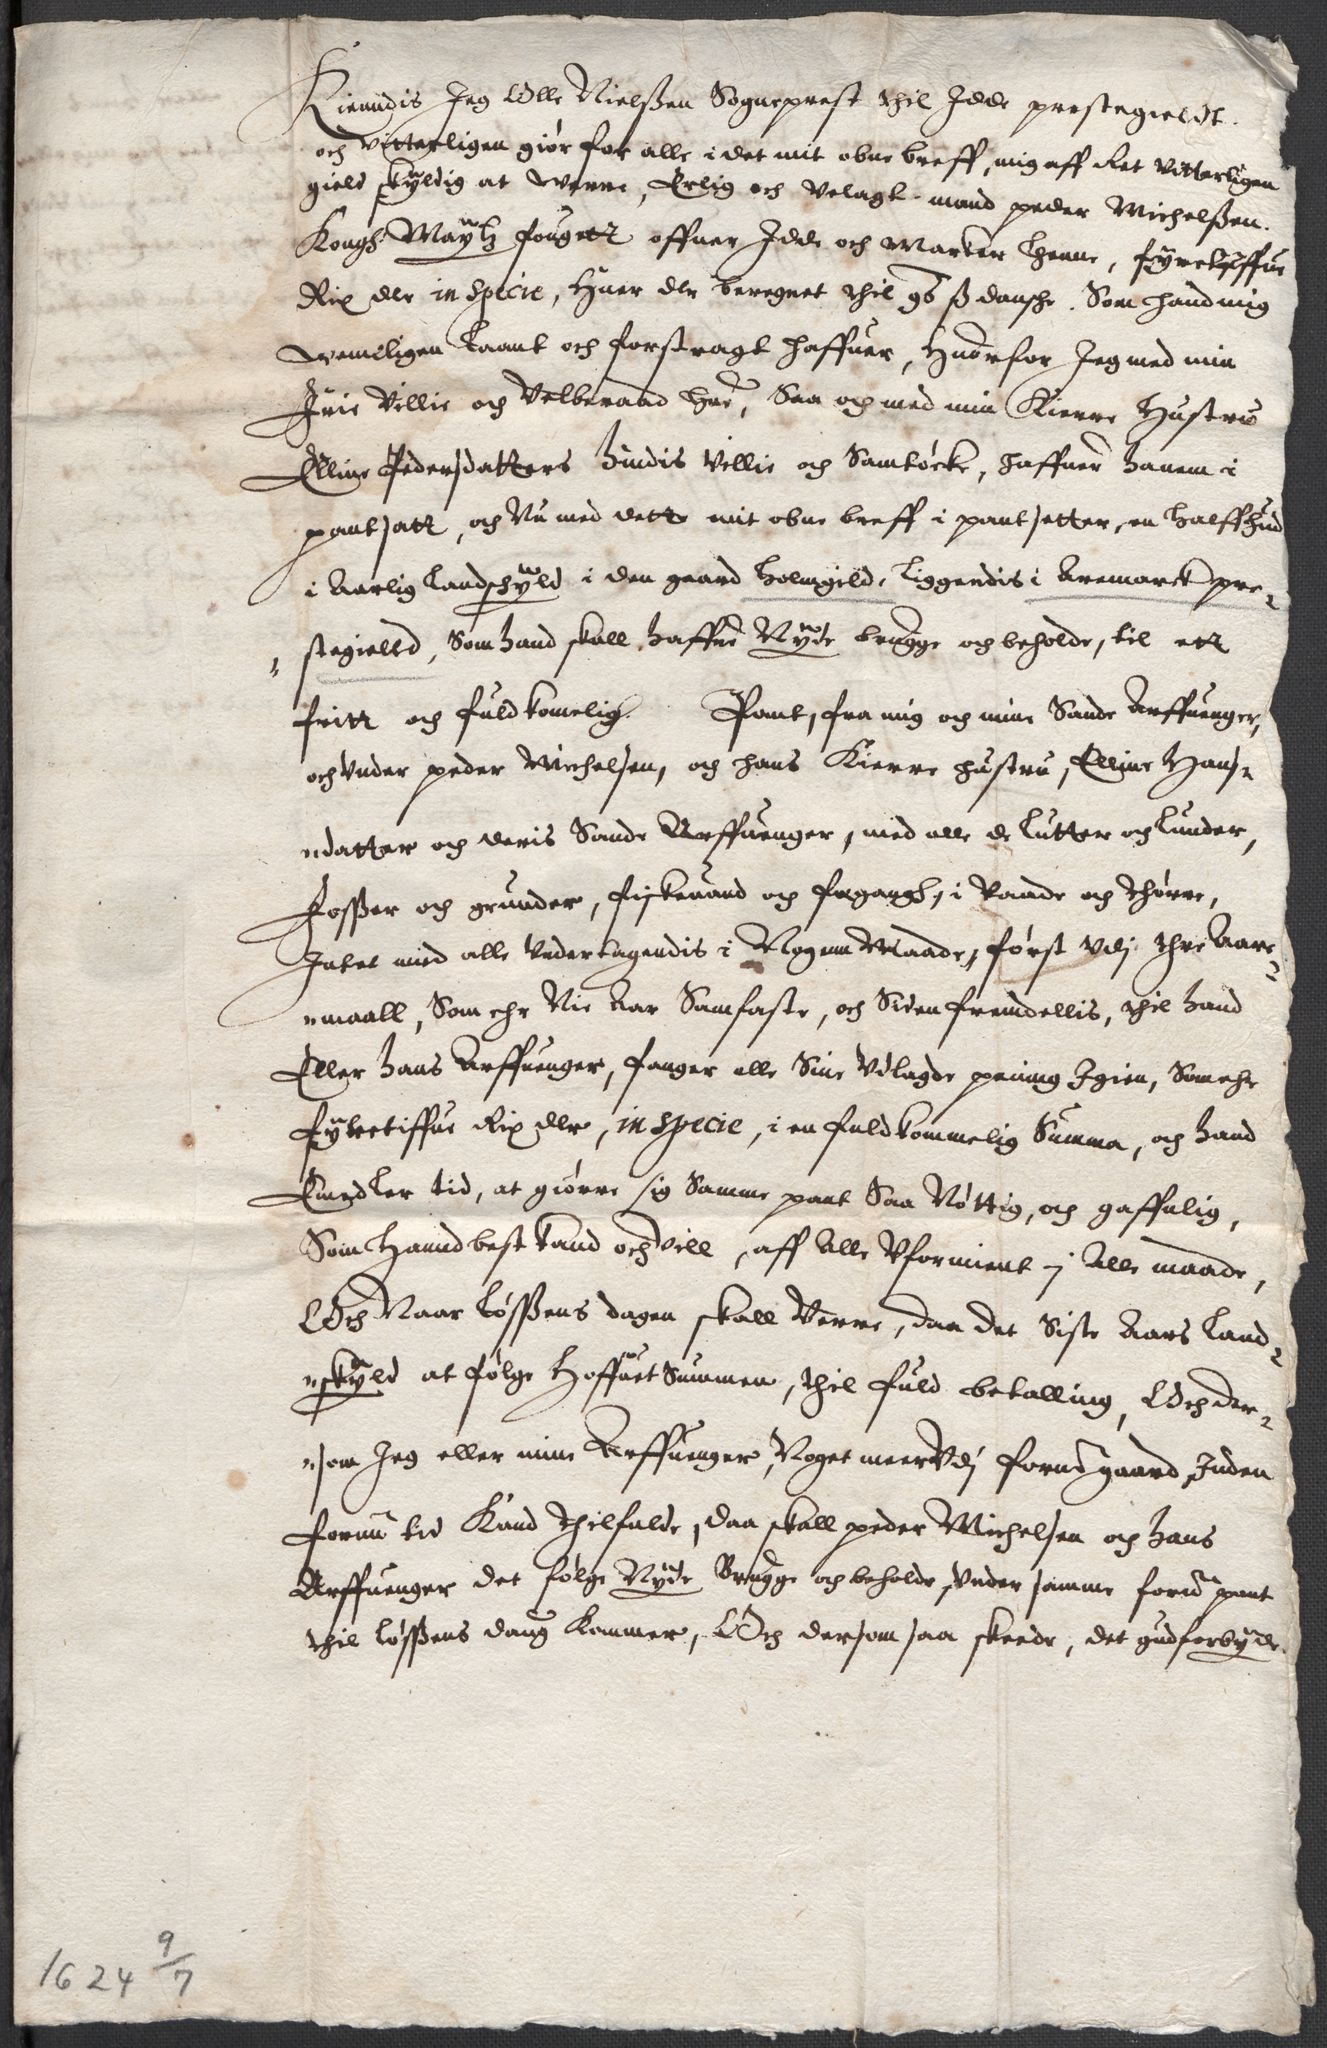 Kiendis Jeg Olle Nielßen Sogneprest thil Idde prestegieldt.
och Vitterligen giør for alle i det mit obne breff, mig aff Ret Vitterligen
gield skyldig at werre, Erlig och Velagt mand peder Michelßen.
Kongh: Maytz fougett offuer Idde och Marker Lhenne, fyretiffue
Rix dlr in specie, Huer dlr beregnet thil 96 ß dansche. Som hand mig
wenuligen Laant och forstragt haffuer, Huorfor Jeg med min
Frie Villie och Velberaad Hue, Saa och med min Kierre Hustru
Elline Pedersdatters hindis Villie och Samtøcke, haffuer hanem i
pantsatt, och Nu med dette mit obne breff i pantsetter, en Halff Hud
i Aarlig Landschyld i den gaard Holmgild, Liggendis i Aremarck pre-
stegielld, Som hand skall haffue Nyde brugge och beholde, til ett
fritt och fuldkomelig Pant, fra mig och mine Sande Arffuenger,
och Vnder peder Michelsen, och hans Kierre hustru, Elline Hans-
datter och deris Sande Arffuenger, med alle de Lutter och Lunder,
Fosßer och grunder, fiskeuand och fægangh, i Vaade och thørre,
Intet med alle Vndertagendis i Nogenn Maade, først Vdj thre Aare-
maall, Som ehr Nie Aar Samfaste, och Siden fremdellis, thil hand
Eller hans Arffuenger, fanger alle Sine Vdlagde pening Igien, Som ehr
fyretiffue Rix dlr, in specie, i en fuldkommelig Summa, och hand
Emedler tid, at giørre sig Samme pant Saa Nøttig, och gaffnlig,
Som Hannd best kand och vill, aff Alle Vforment j Alle maade,
Och Naar Løsßens dagen skall Verre, daa det Siste Aars Land-
skyld at følge Hoffuet Summen, thil fuld betalling, Och der-
som Jeg eller mine Arffuenger, Noget meer Vdj fornd gaard, Inden
fornd tid Kand thilfalde, daa skall peder Michelsen och hans
Arffuenger det følge Nyde Brugge och beholde, Vnder samme fornd pant
thil Løsßens daug Kommer, Och dersom saa skeede, det gud forbyde
1624 9/7